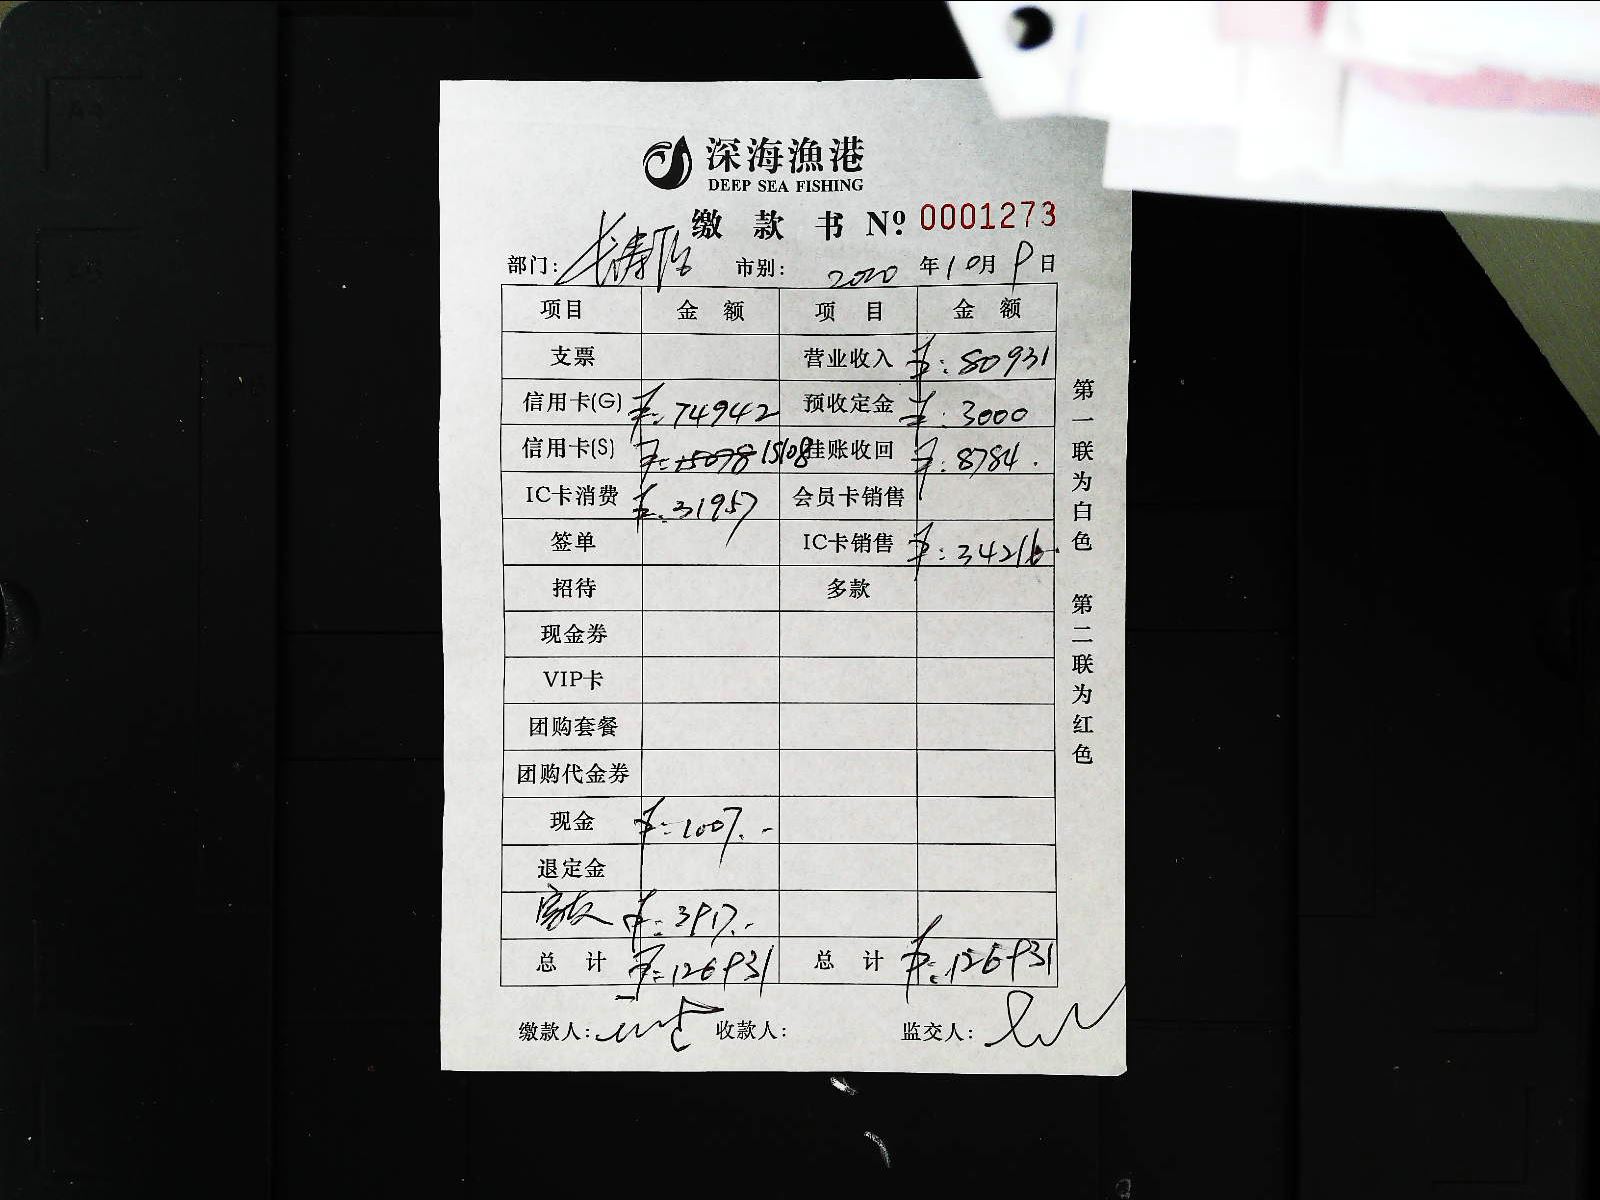 深海漁港
DEEP SEA FISHING
缴款书 Nº 0001273
部门: 长寿路 市别: 2020年10月9日
项目 金额 项目 金额
支票 营业收入 ¥: 80931
信用卡(G) ¥: 74942 预收定金 ¥: 3000
信用卡(S) ¥: 15078 15108 挂账收回 ¥: 8784.
IC卡消费 ¥: 31957 会员卡销售
签单 IC卡销售 ¥: 34216.
招待 多款
现金券
VIP卡
团购套餐
团购代金券
现金 ¥: 1007.-
退定金
¥: 3917.-
总计 ¥: 126931 总计 ¥: 126931
缴款人: 收款人: 监交人:
第一联为白色 第二联为红色